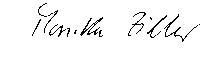 Monika Ziller